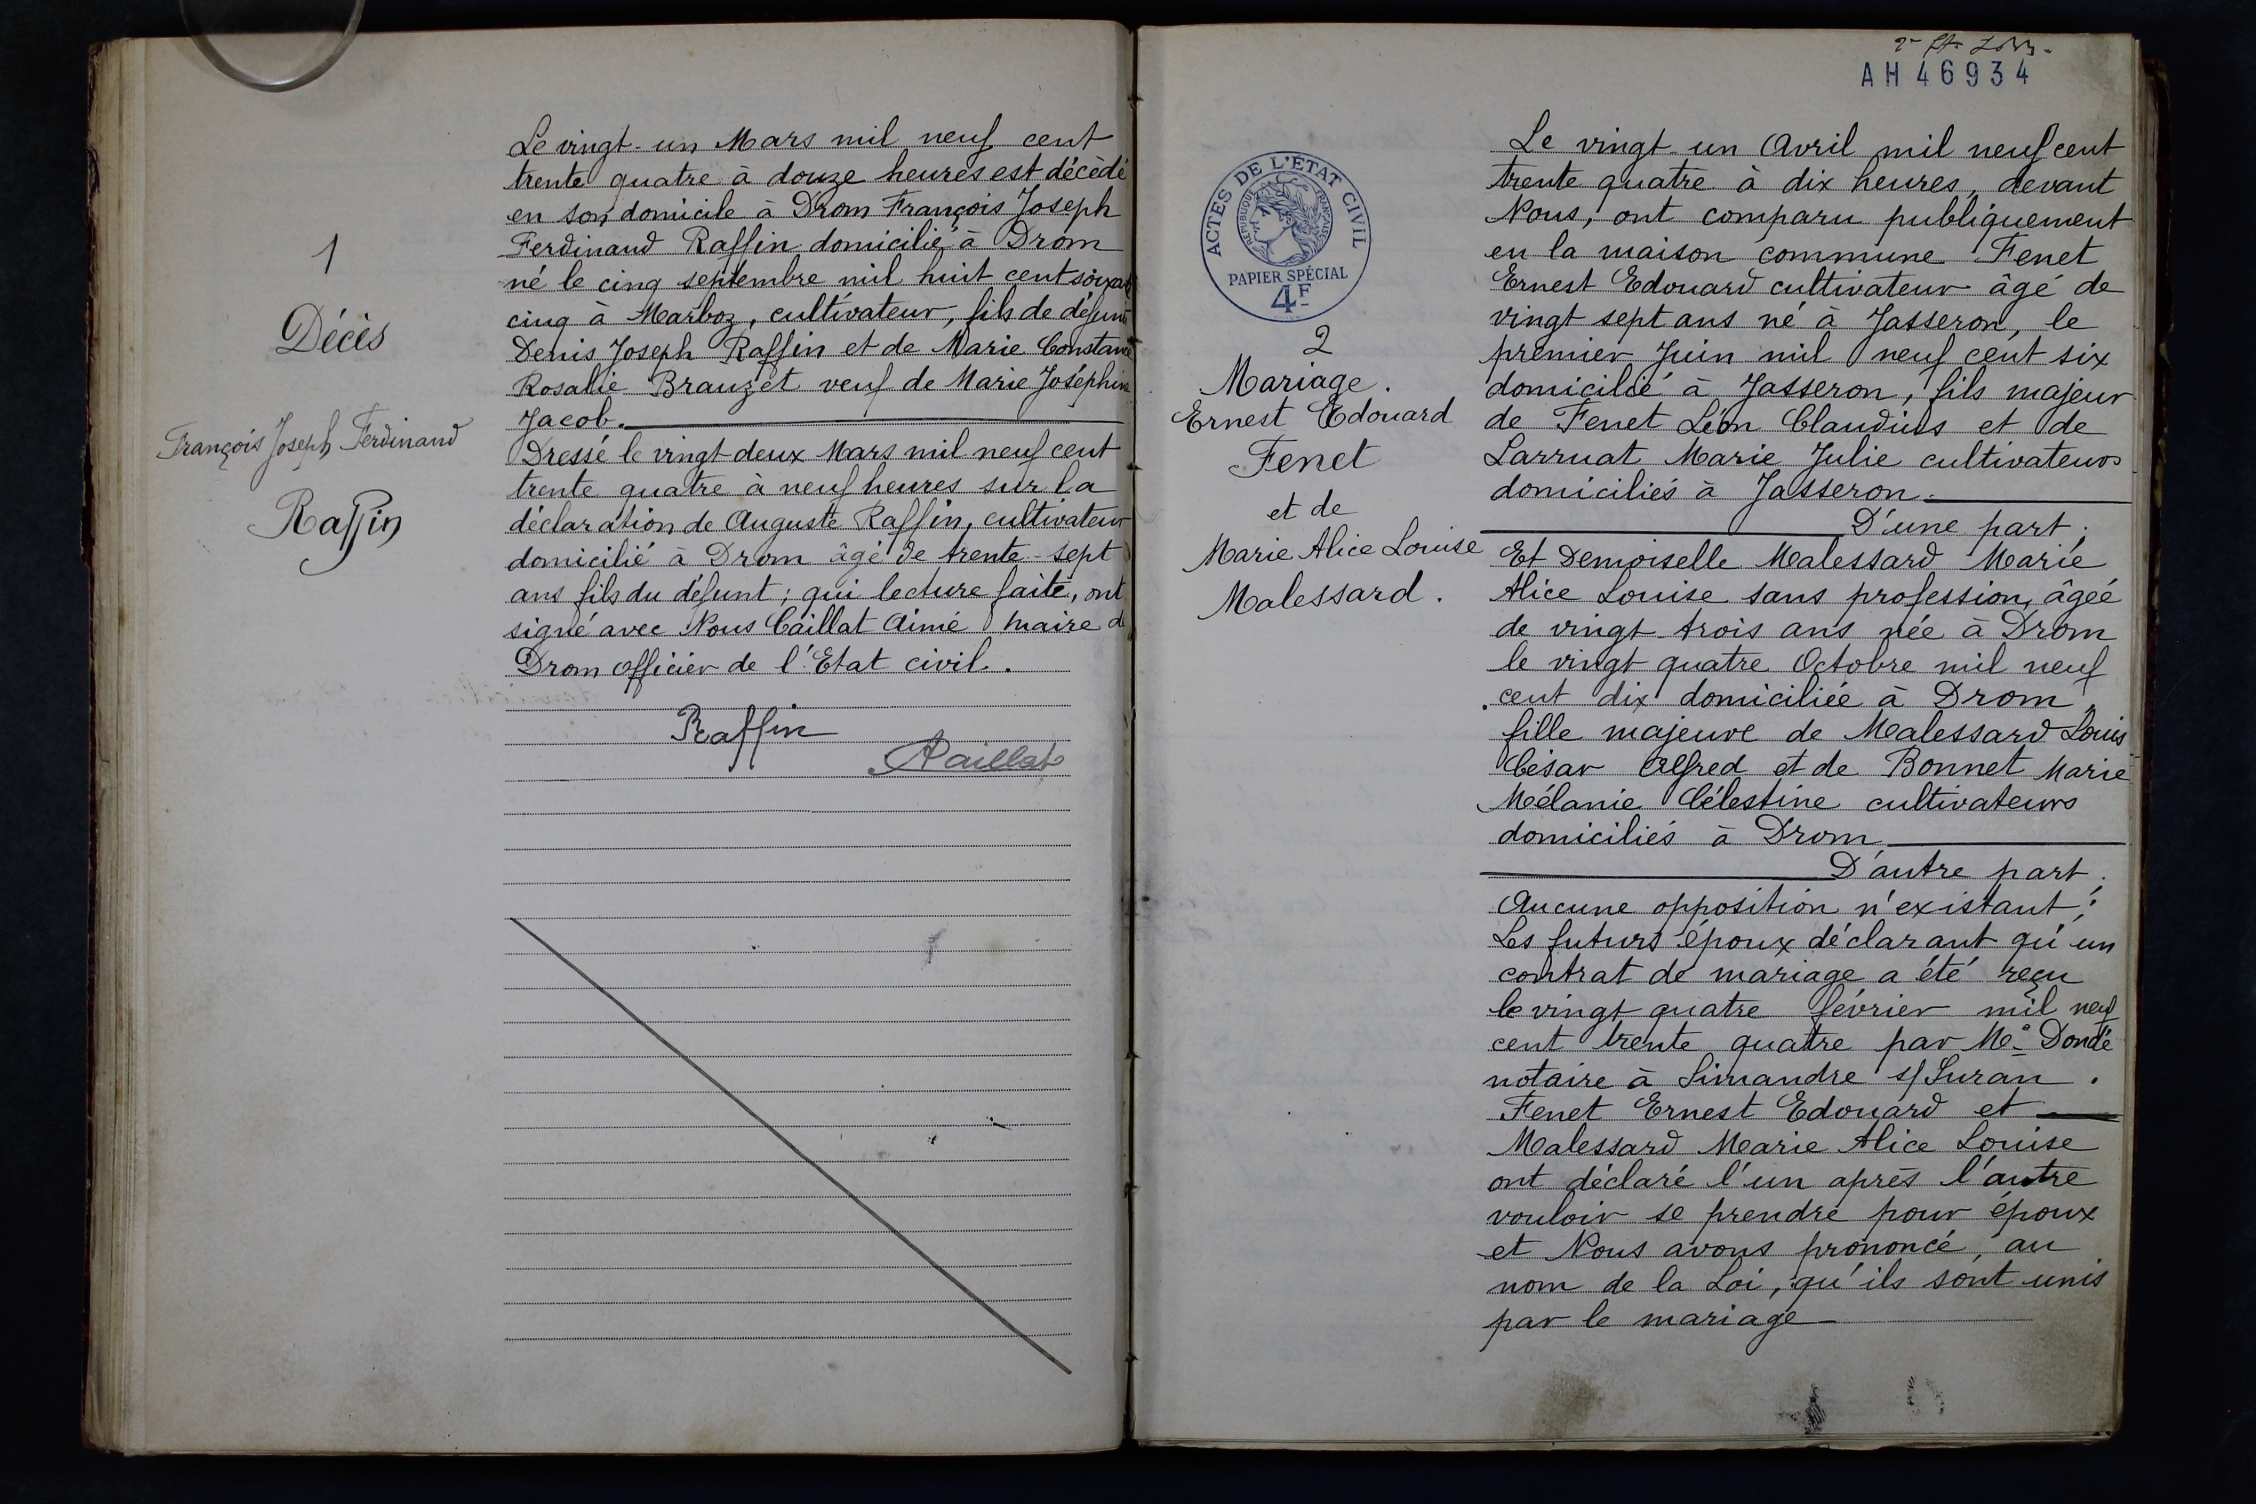 1
Décès
François Joseph Ferdinand
Raffin
Le vingt-un Mars mil neuf cent
trente quatre à douze heures est décédé
en son domicile à Drom François Joseph
Ferdinand Raffin domicilié à Drom
né le cinq septembre mil huit cent soixante
cinq à Marboz, cultivateur, fils de défunts
Denis Joseph Raffin et de Marie Constance
Rosalie Brauzet veuf de Marie Joséphine
Jacob.
Dressé le vingt-deux Mars mil neuf cent
trente quatre à neuf heures sur la
déclaration de Auguste Raffin, cultivateur
domicilié à Drom âgé de trente-sept
ans fils du défunt; qui lecture faite, ont
signé avec Nous Caillat Aimé maire de
Drom officier de l'Etat civil.
Raffin
ACaillat
AH 46934
ACTES DE L'ÉTAT CIVIL
RÉPUBLIQUE FRANÇAISE
PAPIER SPÉCIAL
4F
2
Mariage.
Ernest Edouard
Fenet
et de
Marie Alice Louise
Malessard.
Le vingt-un Avril mil neuf cent
trente quatre à dix heures, devant
Nous, ont comparu publiquement
en la maison commune Fenet
Ernest Edouard cultivateur âgé de
vingt sept ans né à Jasseron, le
premier Juin mil neuf cent six
domicilié à Jasseron, fils majeur
de Fenet Léon Claudius et de
Larruat Marie Julie cultivateurs
domiciliés à Jasseron.
D'une part;
Et Demoiselle Malessard Marie
Alice Louise sans profession, âgée
de vingt-trois ans née à Drom
le vingt quatre Octobre mil neuf
cent dix domiciliée à Drom,
fille majeure de Malessard Louis
César Alfred et de Bonnet Marie
Mélanie Célestine cultivateurs
domiciliés à Drom
D'autre part.
Aucune opposition n'existant;
Les futurs époux déclarant qu'un
contrat de mariage a été reçu
le vingt quatre février mil neuf
cent trente quatre par Me Dondé
notaire à Simandre s/Suran.
Fenet Ernest Edouard et
Malessard Marie Alice Louise
ont déclaré l'un après l'autre
vouloir se prendre pour époux
et Nous avons prononcé, au
nom de la Loi, qu'ils sont unis
par le mariage